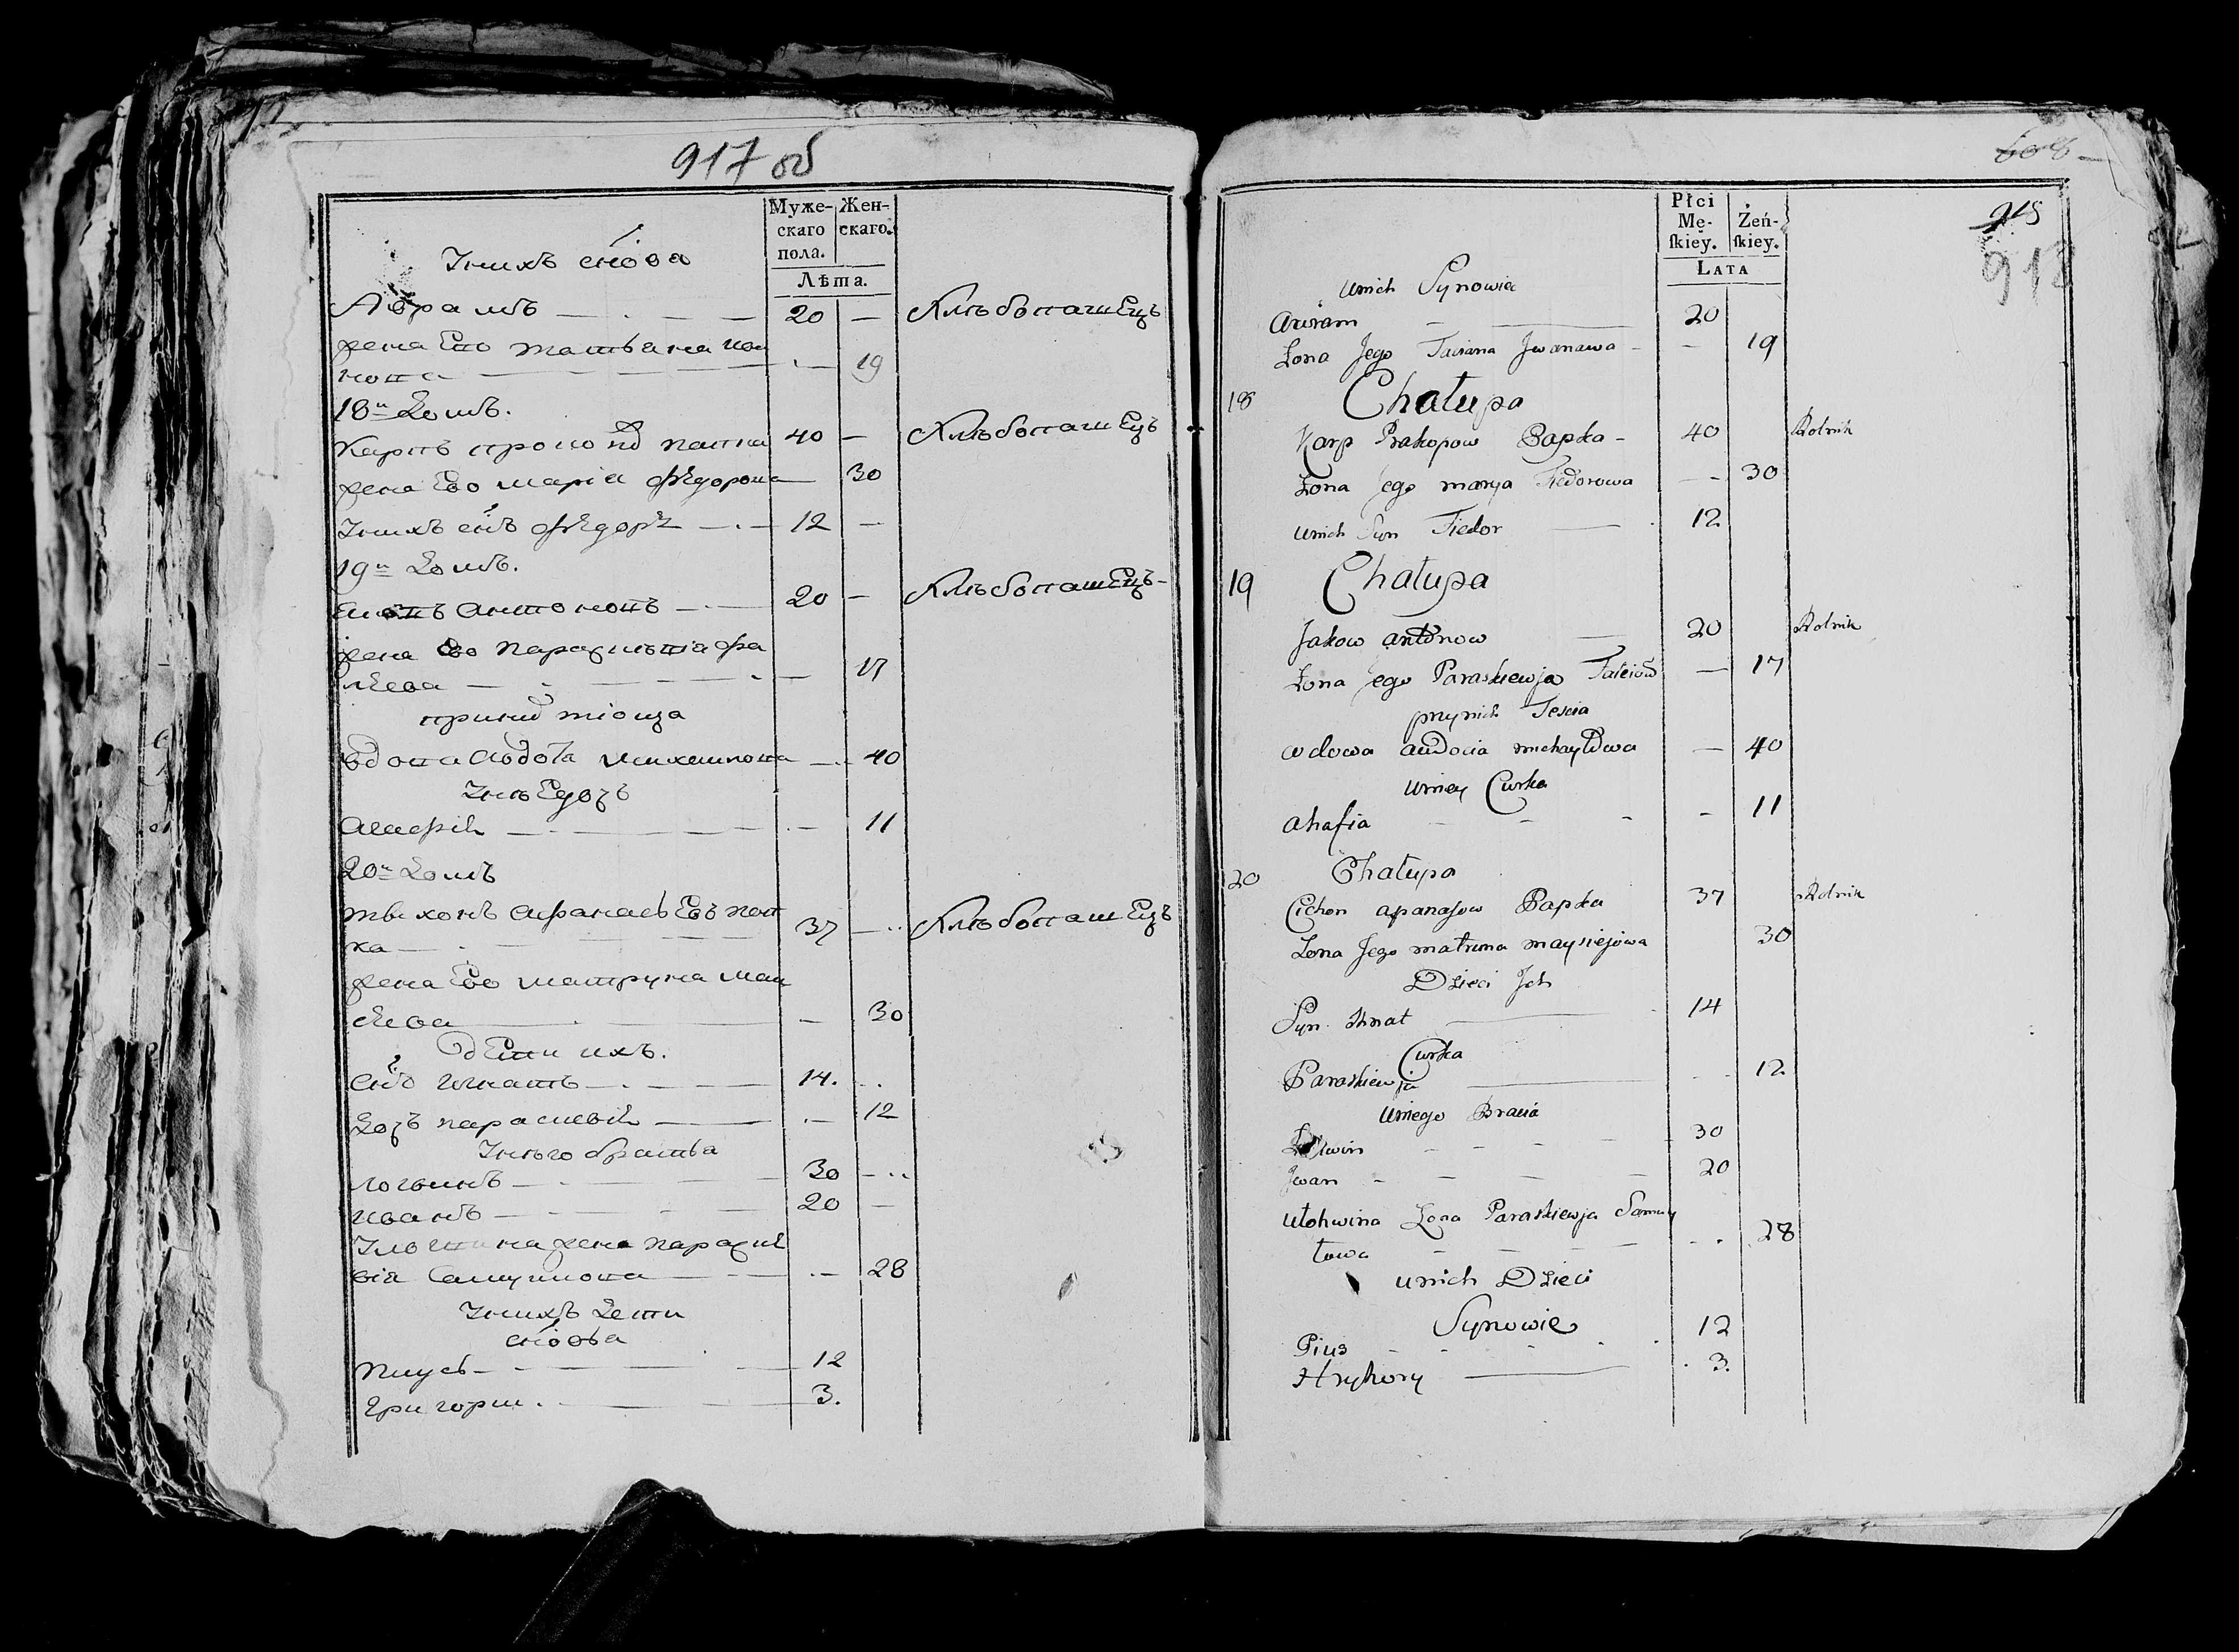 917 об
Муже-
скаго
пола.
Жен-
скаго.
Лѣта.
Унихъ сн҃ова
Авраамъ — 20 — Хлѣбопашецъ
жена Его татьяна ива
нова — 19
18й Домъ.
Карпъ прокопо папка 40 — Хлѣбопашецъ
жена Ево марія федорова — 30
Унихъ сн҃ъ федоръ — 12 —
19й Домъ.
антоновъ — 20 — Хлѣбопашецъ
жена Ево Параскѣвія фа
лѣева — 17
принихъ тіоща
вдова авдотя михайлова — 40
Унѣе дочь
Агафія — 11
20й Домъ
тихонъ афанасьевъ пап
ка — 37 — Хлѣбопашецъ
жена Ево матруна мои
сѣева — 30
дети ихъ.
снъ игнатъ — 14.
Дочь парасковія — 12
Унѣго братья
логвинъ — 30
иванъ — 20 —
Улогвина жена параскѣ
вія Самуилова — 28
Унихъ Дети
сн҃овья
пиусъ — 12
григорий — 3.
608
918
918
Płci
Mę-
ſkiey.
Żeń-
ſkiey.
LATA
unich Synowie
Awram — 20
Zona Jego Taciana Jwanawa — 19
18 Chałupa
Karp Prakopow Papka — 40 Rolnik
Zona Jego marya Fiedorowa — 30
unich Syn Fiedor — 12
19 Chałupa
Jakow antonow — 20 Rolnik
Zona Jego Paraskiewja Faleiow — 17
przynich Tescia
wdowa audocia michayłowa — 40
uniey Curka
ahafia — 11
20 Chałupa
Cichon apanaſow Papka 37 Rolnik
Zona Jego matruna maysiejowa 30
Dzieci Jch
Syn Ihnat — 14
Curka
Paraskiewja — 12
uniego Bracia
Lohwin — 30
Jwan — 20
ułohwina Zona Paraskiewja Samuy
łowa — 28
unich Dzieci
Synowie
Pius — 12
Hryhory — 3.